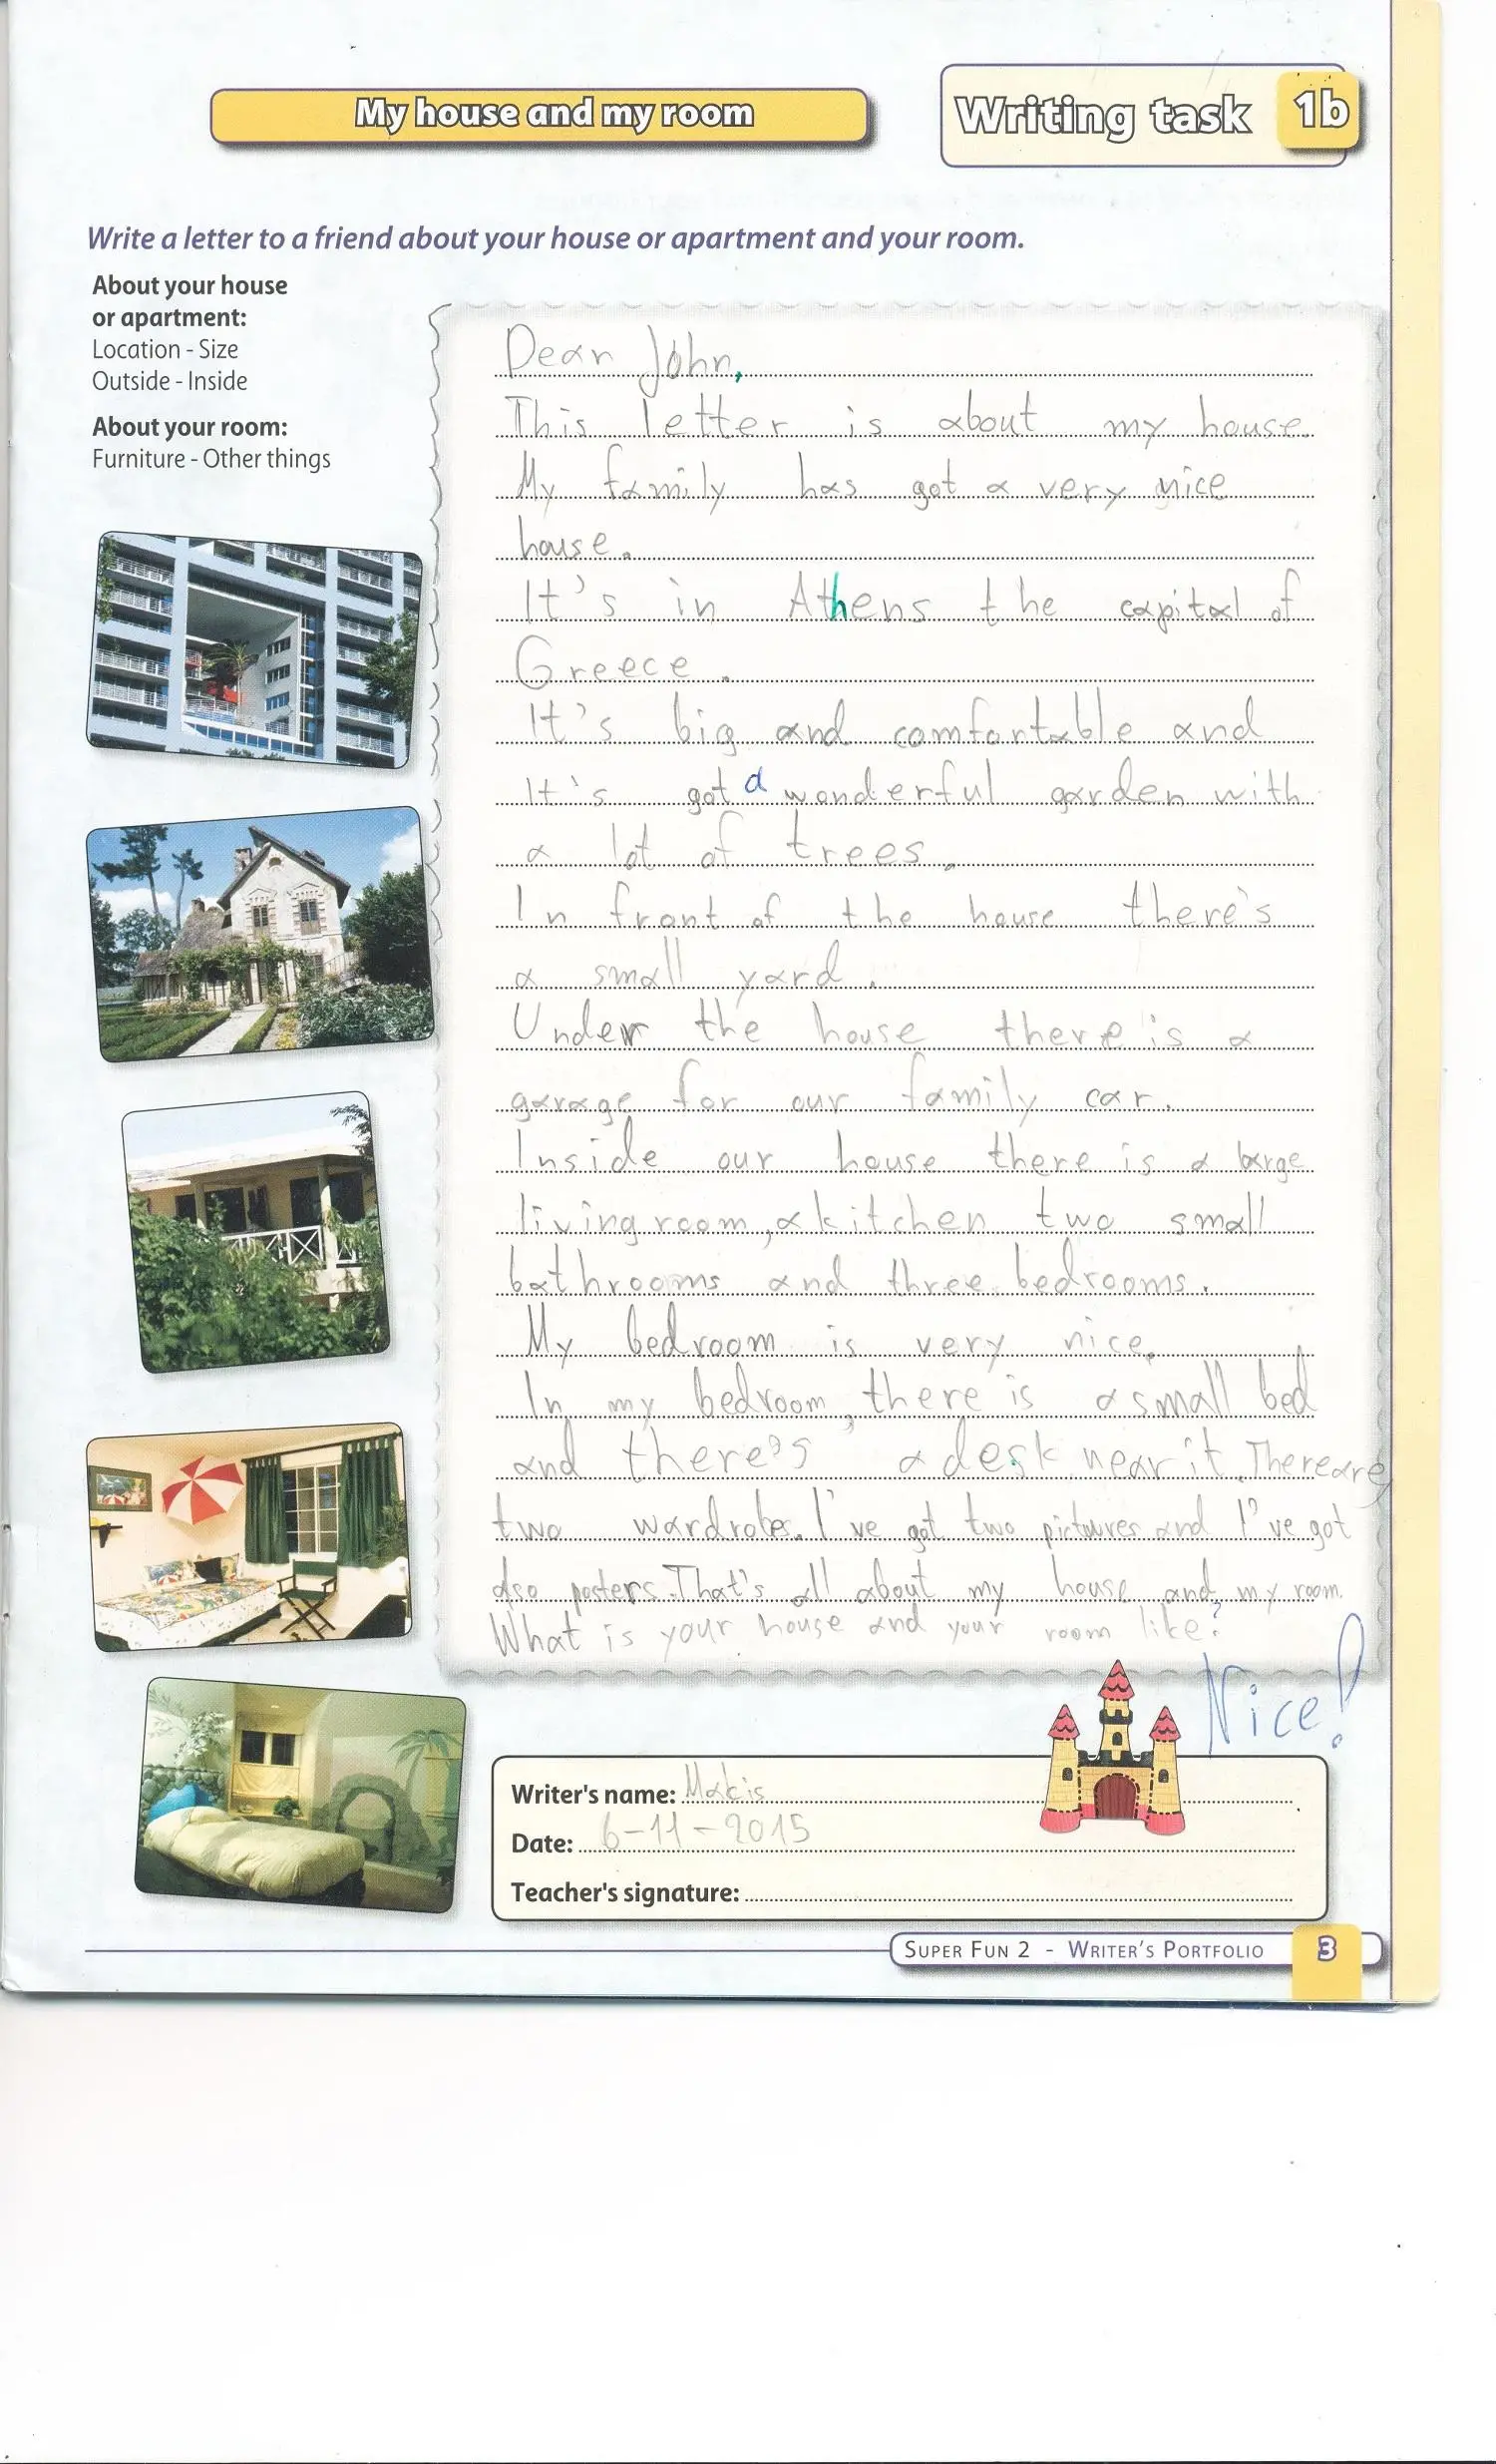 My house and my room
Writing task 1b
Write a letter to a friend about your house or apartment and your room.
About your house
or apartment:
Location - Size
Outside - Inside
About your room:
Furniture - Other things
Dear John,
This letter is about my house.
My family has got a very nice
house.
It's in Athens the capital of
Greece.
It's big and comfortable and
It's got a wonderful garden with
a lot of trees.
In front of the house there's
a small yard.
Under the house there is a
garage for our family car.
Inside our house there is a large
living room, a kitchen two small
bathrooms and three bedrooms.
My bedroom is very nice.
In my bedroom, there is a small bed
and there's a desk near it. There are
two wardrobes. I've got two pictures and I've got
also posters. That's all about my house and my room.
What is your house and your room like?
Nice!
Writer's name: Makis
Date: 6-11-2015
Teacher's signature:
SUPER FUN 2 - WRITER'S PORTFOLIO 3